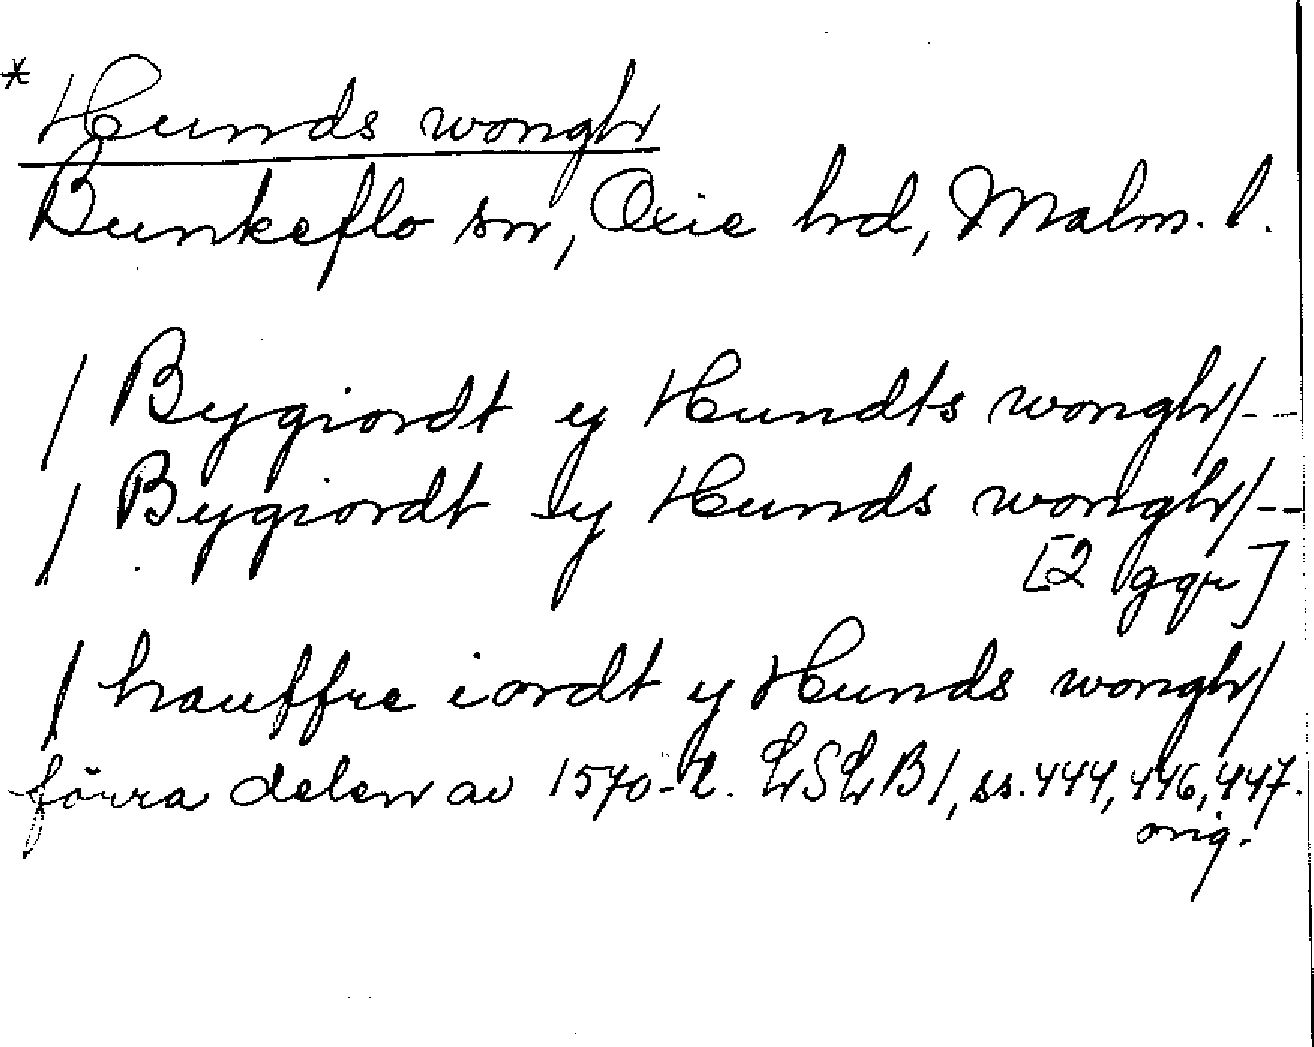 * Hunds wongh
Bunkeflo sn, Oxie hd, Malm. l.
/ Bygiordt y Hundts wongh/--
/ Bygiordt y Hunds wongh/--
[2 ggr]
/ hauffre iordt y Hunds wongh/
förra delen av 1570-t. LSLB 1, ss. 444, 446, 447.
orig.